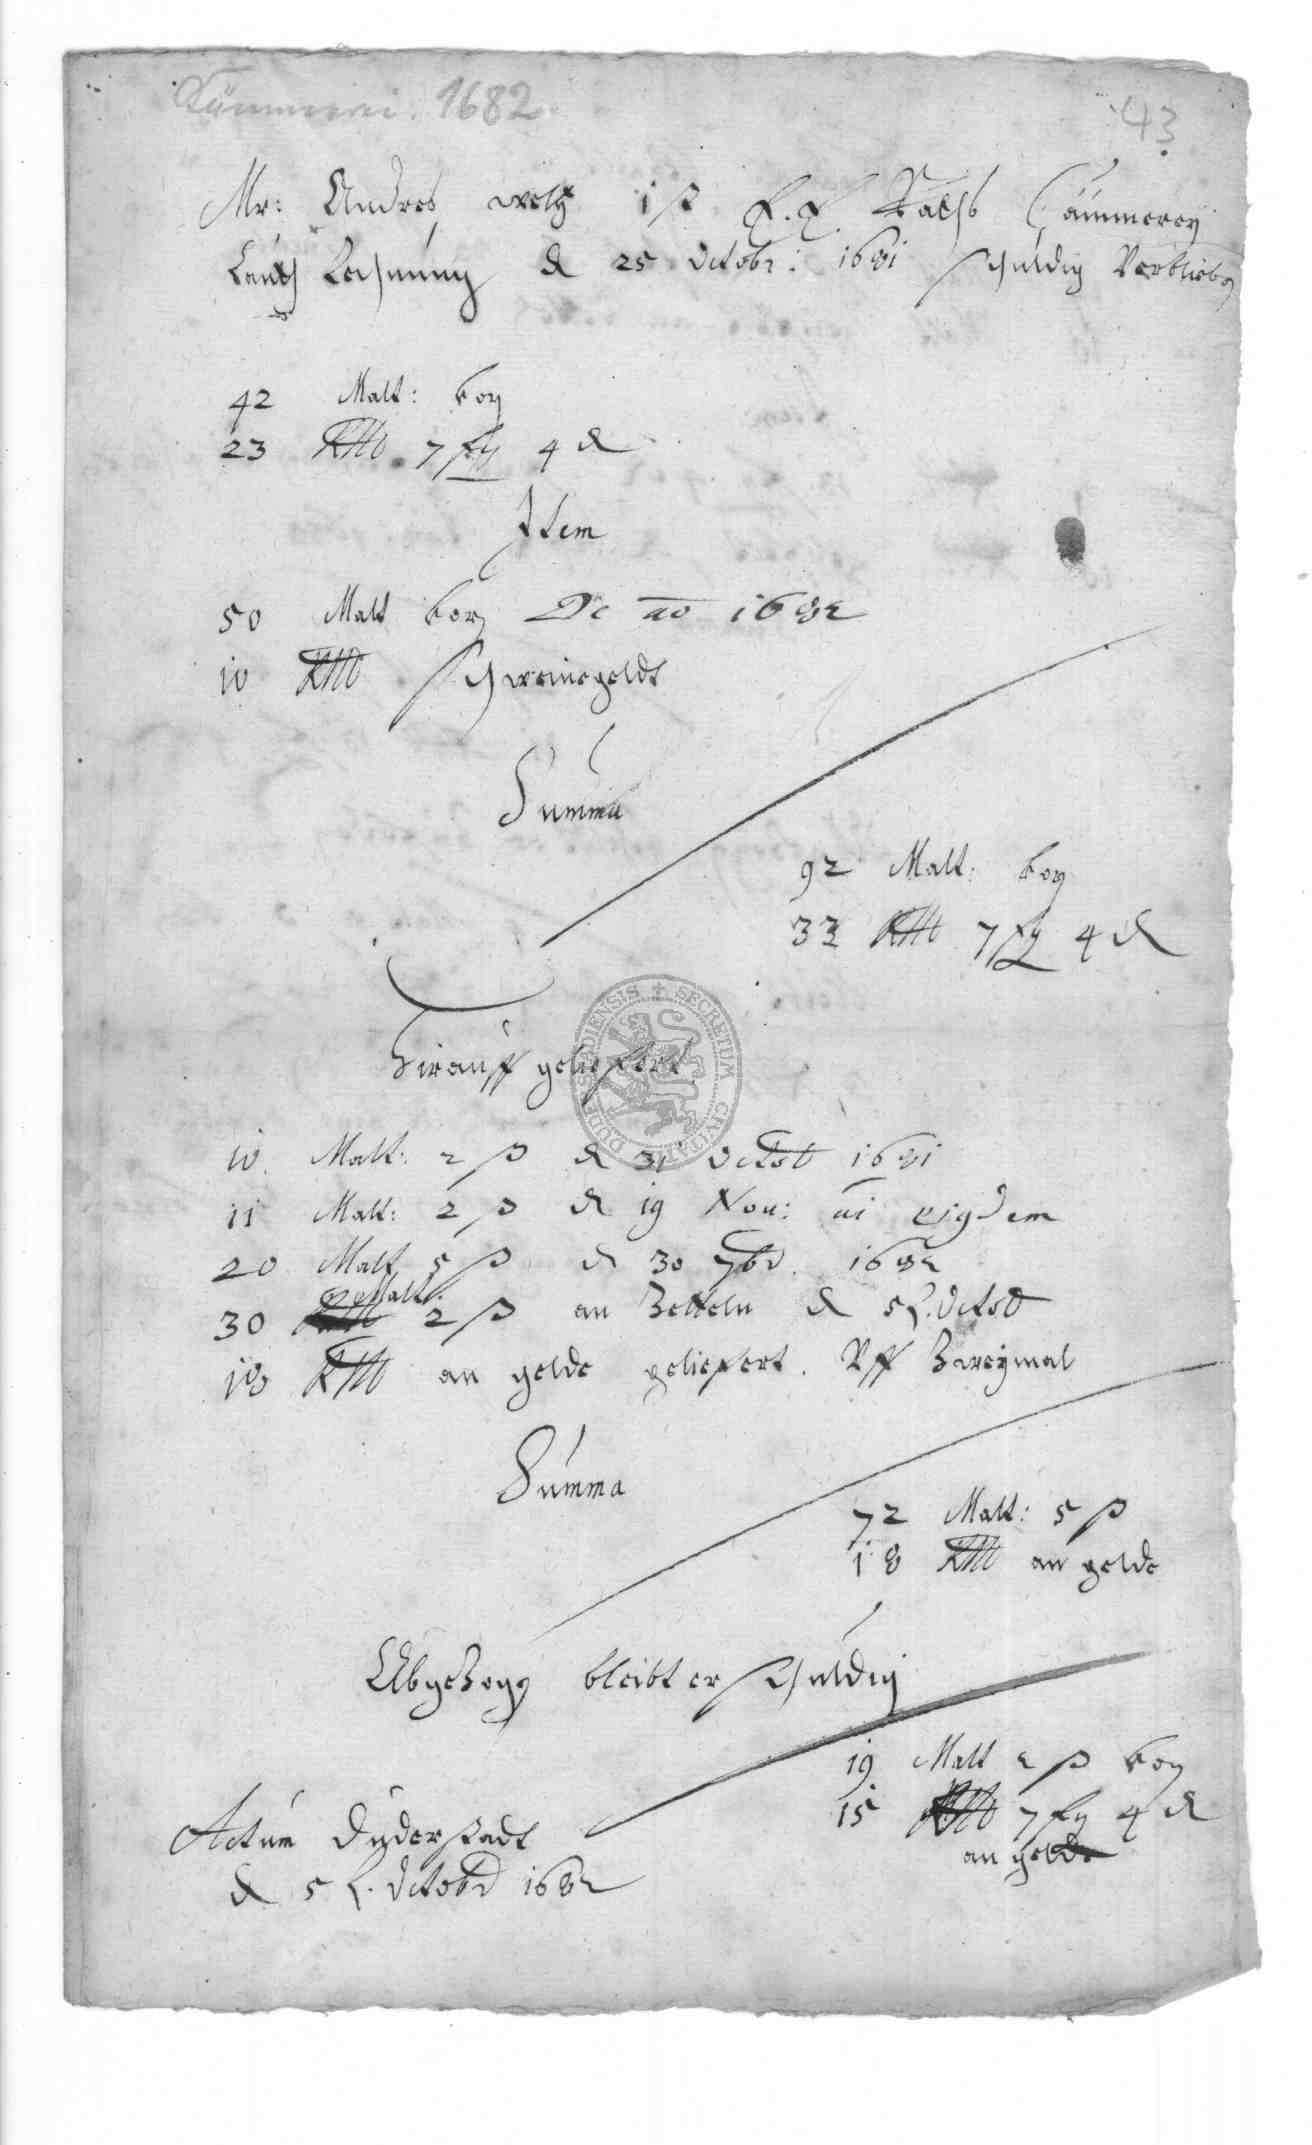 Cämmerei. 1682.
43
Mr: Andres welch iß E. E. Raths Cämmerey
Lauth Rechnung d 25 Octobr: 1681 schuldig Verblieben
42 Malt: korn
23 Rthl 7 sg 4 d
Item
50 Malt korn De ao 1682
10 Rthl schweinegeldt
Summa
92 Malt: korn
33 Rthl 7 sg 4 d
hirauff geliefert
10 Malt: 2 ß d 31 Octob 1681
11 Malt: 2 ß d 19 Nou: ai ejusdem
20 Malt 5 ß d 30 7br. 1682
30 Malt: 2 ß an Zetteln d 5 Octob
18 Rthl an gelde geliefert. Vff Zweymal
Summa
72 Malt: 5 ß
18 Rthl an gelde
Abgezogen bleibt er schuldig
19 Malt 2 ß korn
15 Rthl 7 sg 4 d
an gelde
Actum Duderstadt
d 5 Octobr 1682
DUDERSTADIENSIS + SECRETUM CIVITATIS